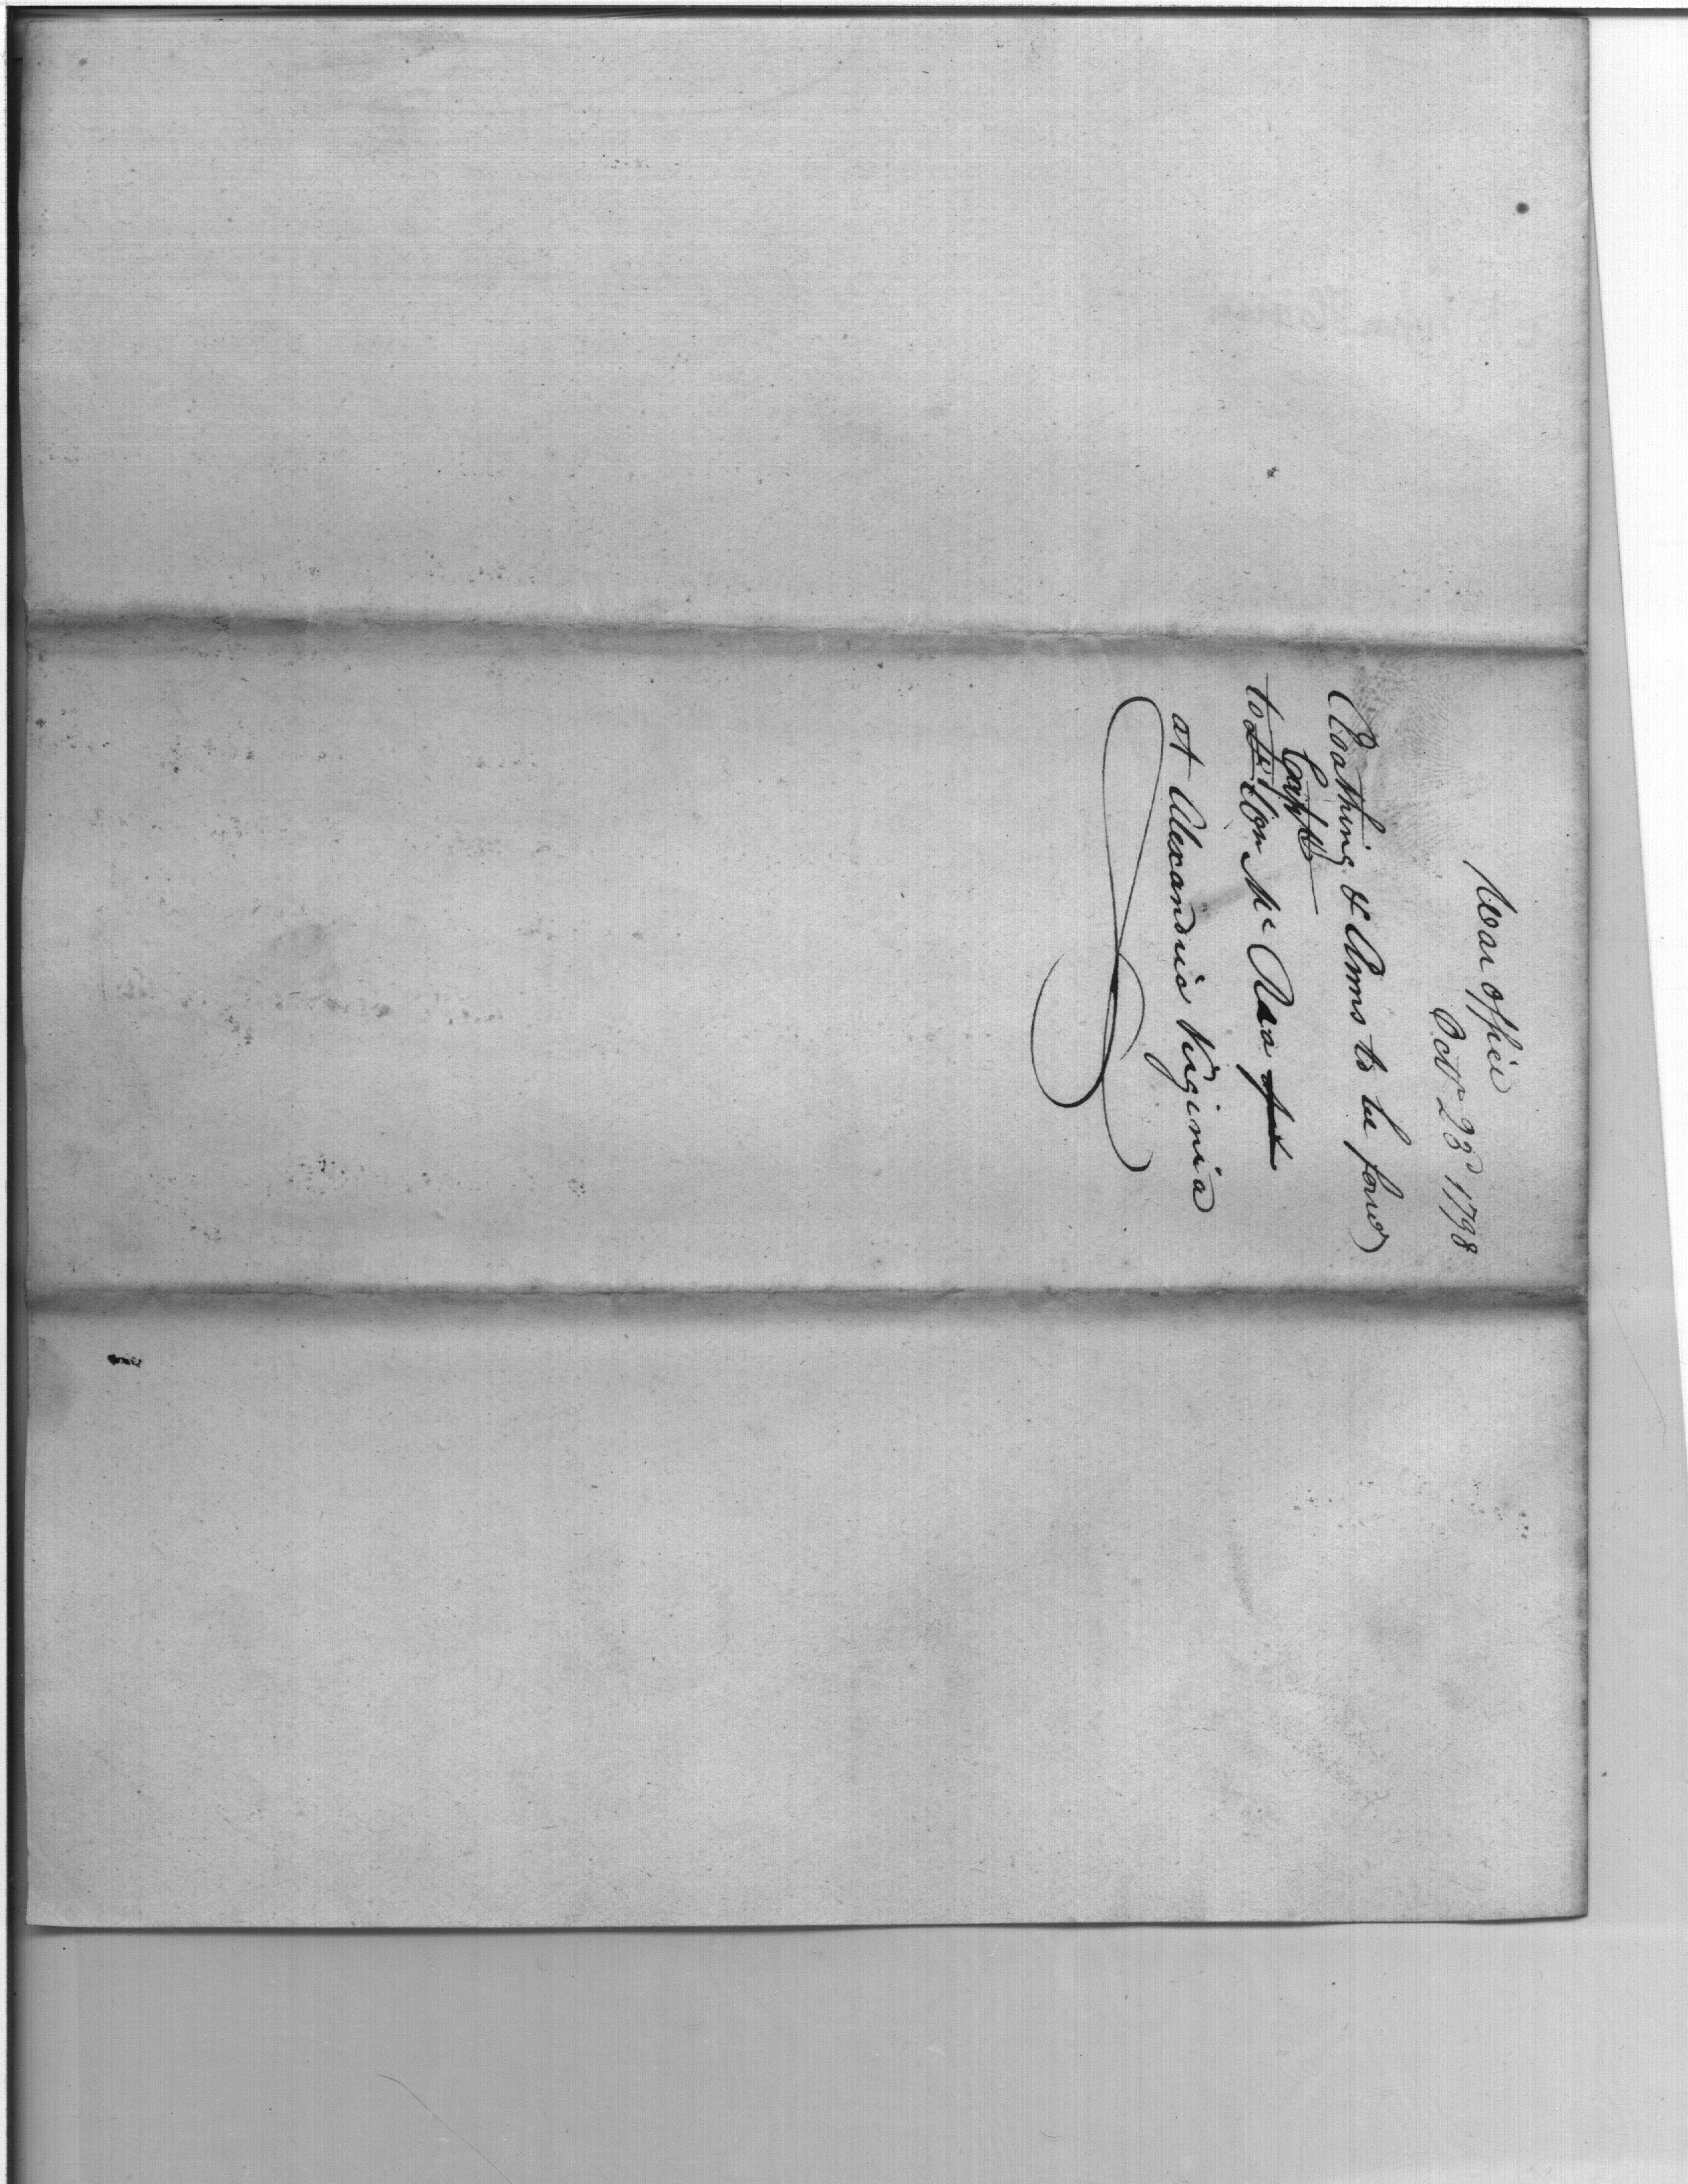 War Office
Octr 23d 1798
Cloathing & Arms to be forwd
Capt
to Lt Wm McRea
at Alexandria Virginia